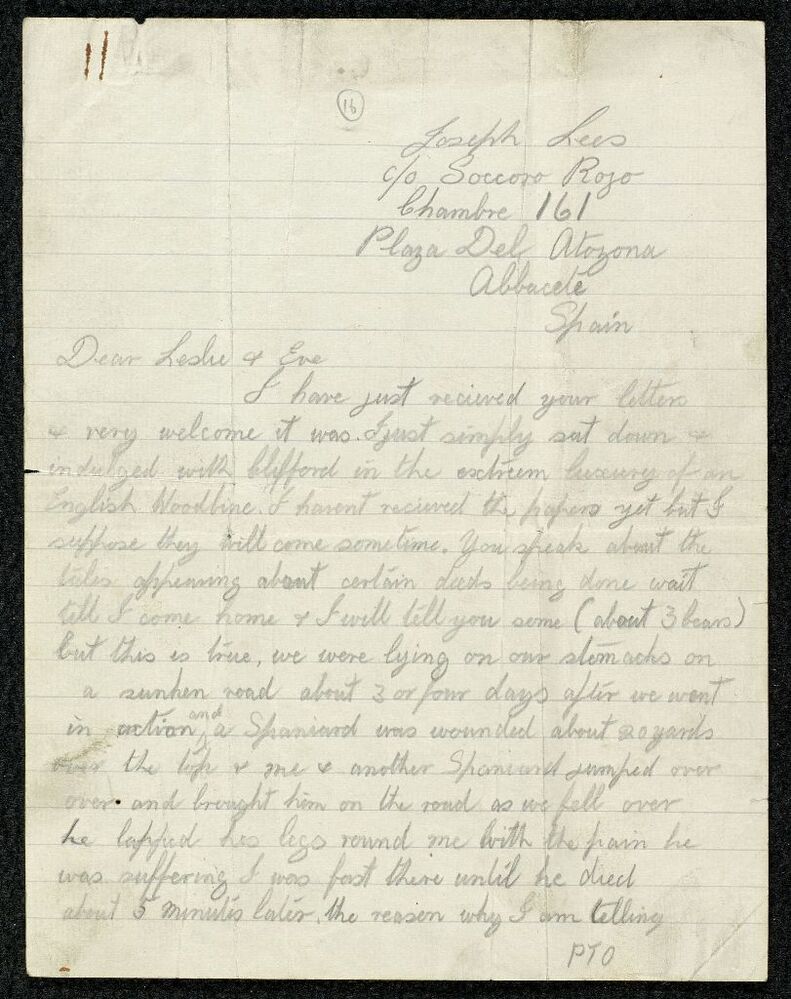 16
Joseph Lees
c/o Soccoro Rojo
Chambre 161
Plaza Del Atozona
Abbacete
Spain
Dear Leslie & Eve
I have just recieved your letters
& very welcome it was. I just simply sat down &
indulged with Clifford in the extreem luxury of an
English Woodbine. I havent recieved the papers yet but I
suppose they will come sometime. You speak about the
tales appearing about certain deeds being done wait
till I come home & I will tell you some (about 3 bears)
but this is true, we were lying on our stomachs on
a sunken road about 3 or four days after we went
in action and a Spaniard was wounded about 20 yards
over the top & me & another Spaniard jumped over
over. and brought him on the road as we fell over
he lapped his legs round me with the pain he
was suffering I was fast there until he died
about 5 minutes later, the reason why I am telling
PTO